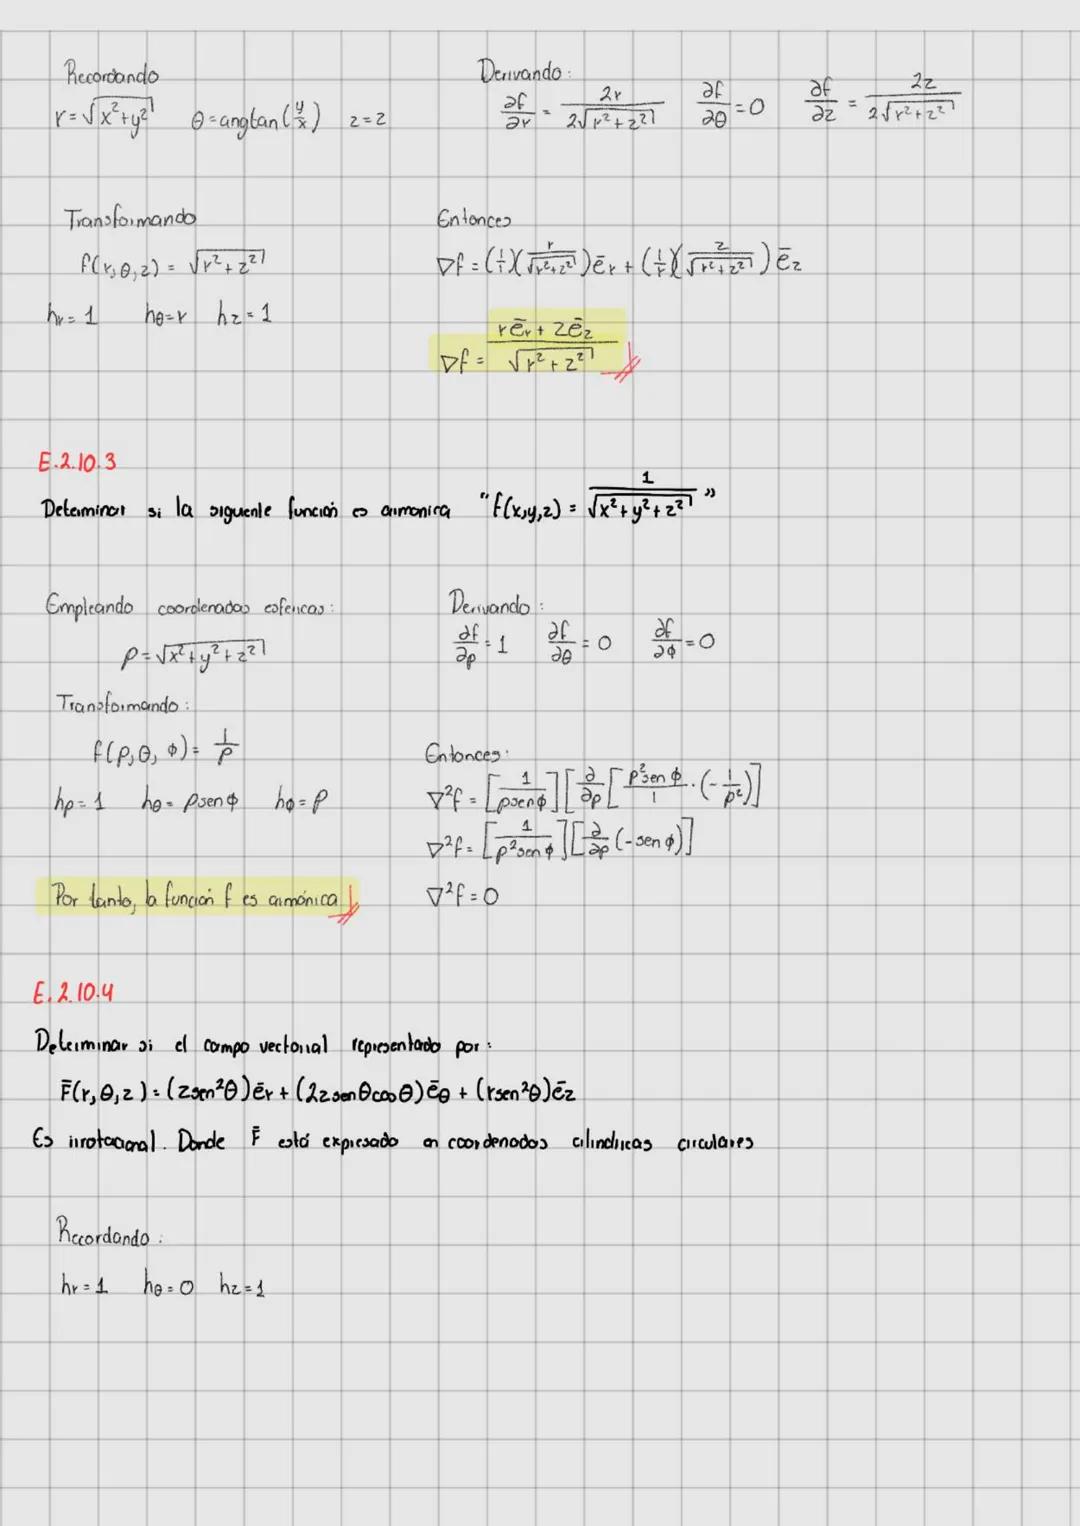 Recordando
r = √(x²+y²)   θ = angtan(y/x)   z = z
Derivando:
∂f/∂r = 2r/(2√(r²+z²))   ∂f/∂θ = 0   ∂f/∂z = 2z/(2√(r²+z²))
Transformando
f(r,θ,z) = √(r²+z²)
hr = 1   hθ = r   hz = 1
Entonces
∇f = (1/1)(r/√(r²+z²))ēr + (1/1)(z/√(r²+z²))ēz
∇f = (rēr + zēz)/√(r²+z²)
E.2.10.3
Determinar si la siguiente función es armonica "f(x,y,z) = 1/√(x²+y²+z²)"
Empleando coordenadas esfericas:
ρ = √(x²+y²+z²)
Transformando:
f(ρ,θ,φ) = 1/ρ
hρ = 1   hθ = ρsenφ   hφ = ρ
Por tanto, la función f es armónica
Derivando:
∂f/∂ρ = 1   ∂f/∂θ = 0   ∂f/∂φ = 0
Entonces:
∇²f = [1/(ρsenφ)][∂/∂ρ[(ρ²senφ/1)·(-1/ρ²)]]
∇²f = [1/(ρ²senφ)][∂/∂ρ(-senφ)]
∇²f = 0
E.2.10.4
Determinar si el campo vectorial representado por:
F̄(r,θ,z) = (zsen²θ)ēr + (2zsenθcosθ)ēθ + (rsen²θ)ēz
Es irrotacional. Donde F̄ está expresado en coordenadas cilindricas circulares
Recordando:
hr = 1   hθ = 0   hz = 1